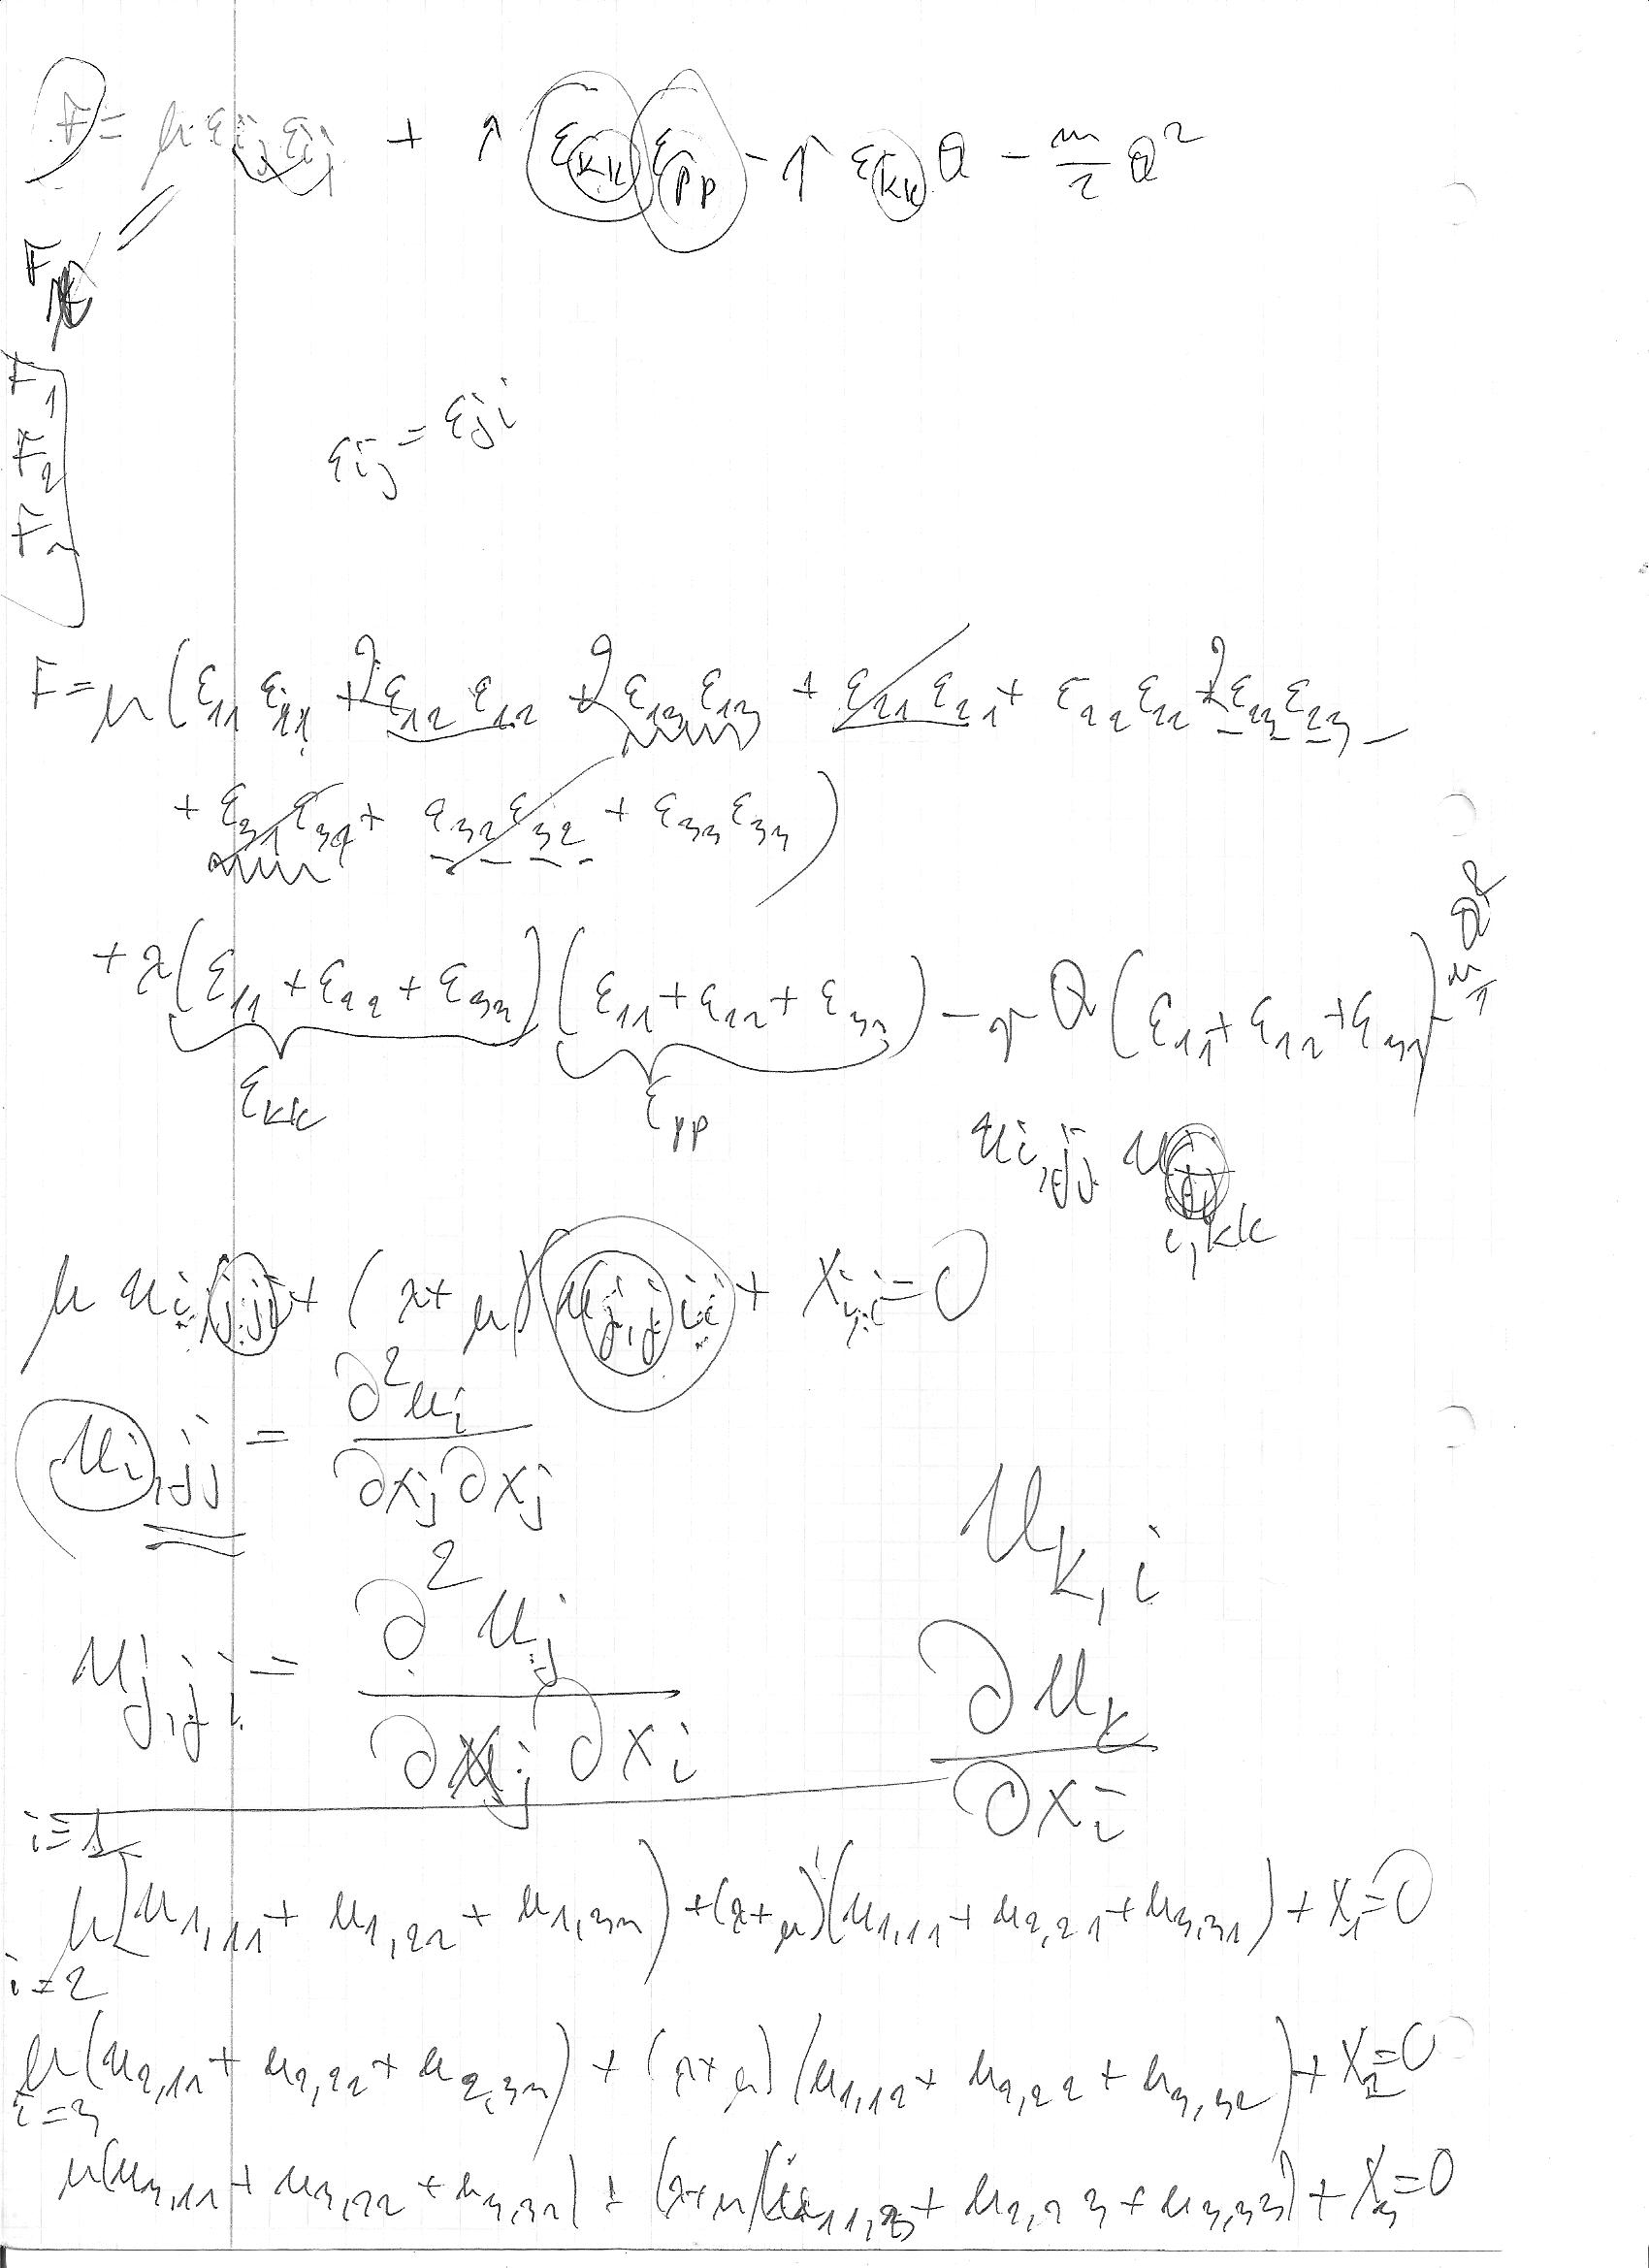 F = μ εij εij + λ εkk εpp - γ εkk θ - m/2 θ²
F
F1 F2 F3
εij = εji
F = μ(ε11 ε11 + 2ε12 ε12 + 2ε13 ε13 + ε21 ε21 + ε22 ε22 + 2ε23 ε23
+ ε31 ε31 + ε32 ε32 + ε33 ε33)
+ λ(ε11 + ε22 + ε33)(ε11 + ε22 + ε33) - γ θ(ε11 + ε22 + ε33) - m/2 θ²
εkk εpp
ui,jj u i,kk
μ ui,jj + (λ+μ) uj,ji + Xi = 0
ui,jj = ∂²ui / ∂xj ∂xj
uk,i
uj,ji = ∂²uj / ∂xj ∂xi
∂uk / ∂xi
i=1
μ(u1,11 + u1,22 + u1,33) + (λ+μ)(u1,11 + u2,21 + u3,31) + X1 = 0
i=2
μ(u2,11 + u2,22 + u2,33) + (λ+μ)(u1,12 + u2,22 + u3,32) + X2 = 0
i=3
μ(u3,11 + u3,22 + u3,33) + (λ+μ)(u1,13 + u2,23 + u3,33) + X3 = 0